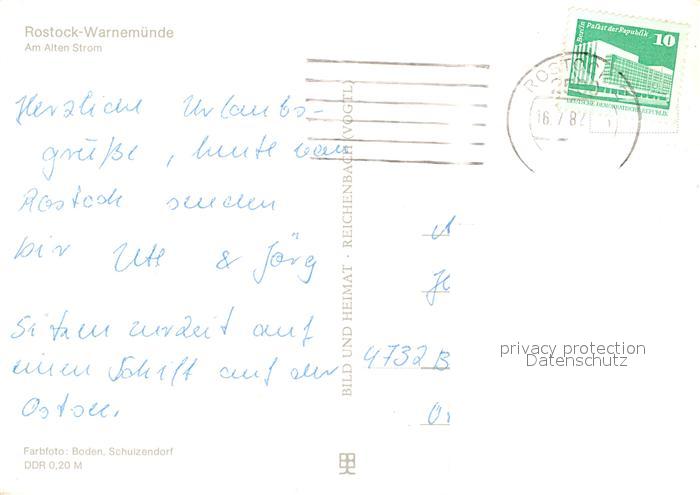 Rostock-Warnemünde
Am Alten Strom
Herzliche Urlaubs-
grüße, heute von
Rostock senden
Dir Ute & Jörg
Sitzen zurzeit auf
einen Schiff auf der
Ostsee.
Farbfoto: Boden, Schulzendorf
DDR 0,20 M
BILD UND HEIMAT · REICHENBACH (VOGTL)
Berlin Palast der Republik
10
DEUTSCHE DEMOKRATISCHE REPUBLIK
ROSTOC
16.7.82
4732 B
privacy protection
Datenschutz